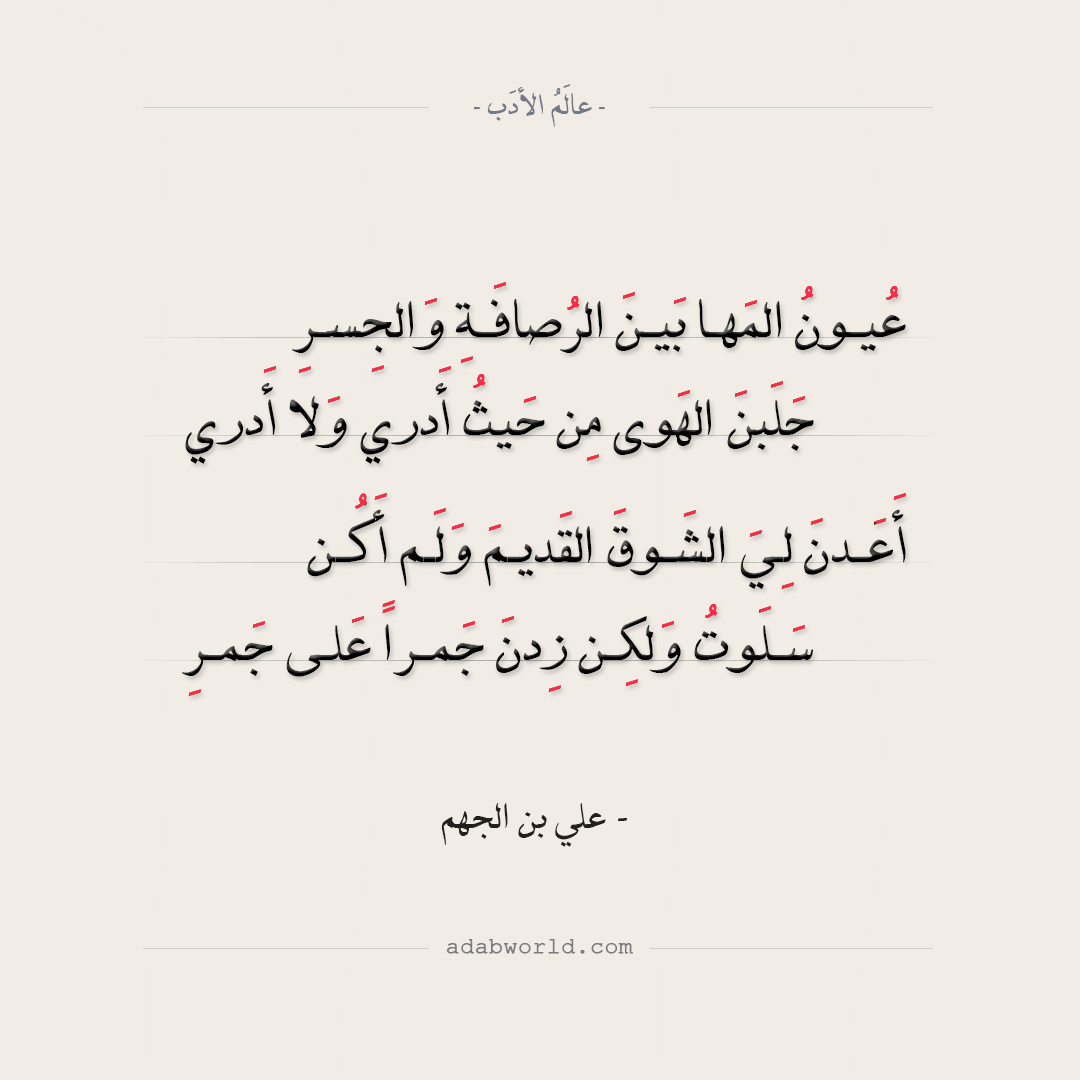 - عالَمُ الأدَب -
عُيـونُ المَهـا بَيـنَ الرُصافَـةِ وَالجِسـرِ
جَلَبنَ الهَوى مِن حَيثُ أَدري وَلا أَدري
أَعَـدنَ لِـيَ الشَـوقَ القَديـمَ وَلَـم أَكُـن
سَـلَـوتُ وَلَكِـن زِدنَ جَمـراً عَلـى جَمـرِ
- علي بن الجهم
adabworld.com